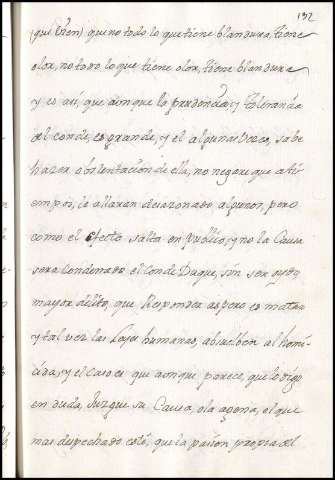 132
(que bien) que no todo lo que tiene blandura, tiene
olor, no todo lo que tiene olor, tiene blandura
y es asi, que aunque la prudencia, y tolerancia
del conde, es grande, y el algunas veces, sabe
hazer obstentacion de ella, no negare que a ti
empos, le allaran desazonado algunos, pero
como el efecto salta en publico, y no la Causa
sera condenado el Conde Duque, sin ser oydo
mayor delito, que Responder aspero es matar
y tal vez las leyes humanas, absuelben al homi
cida, y el caso es que aunque parece, que lo digo
en duda, Juzgue su Causa, o la agena, el que
mas despechado esté, que la pasion propia del